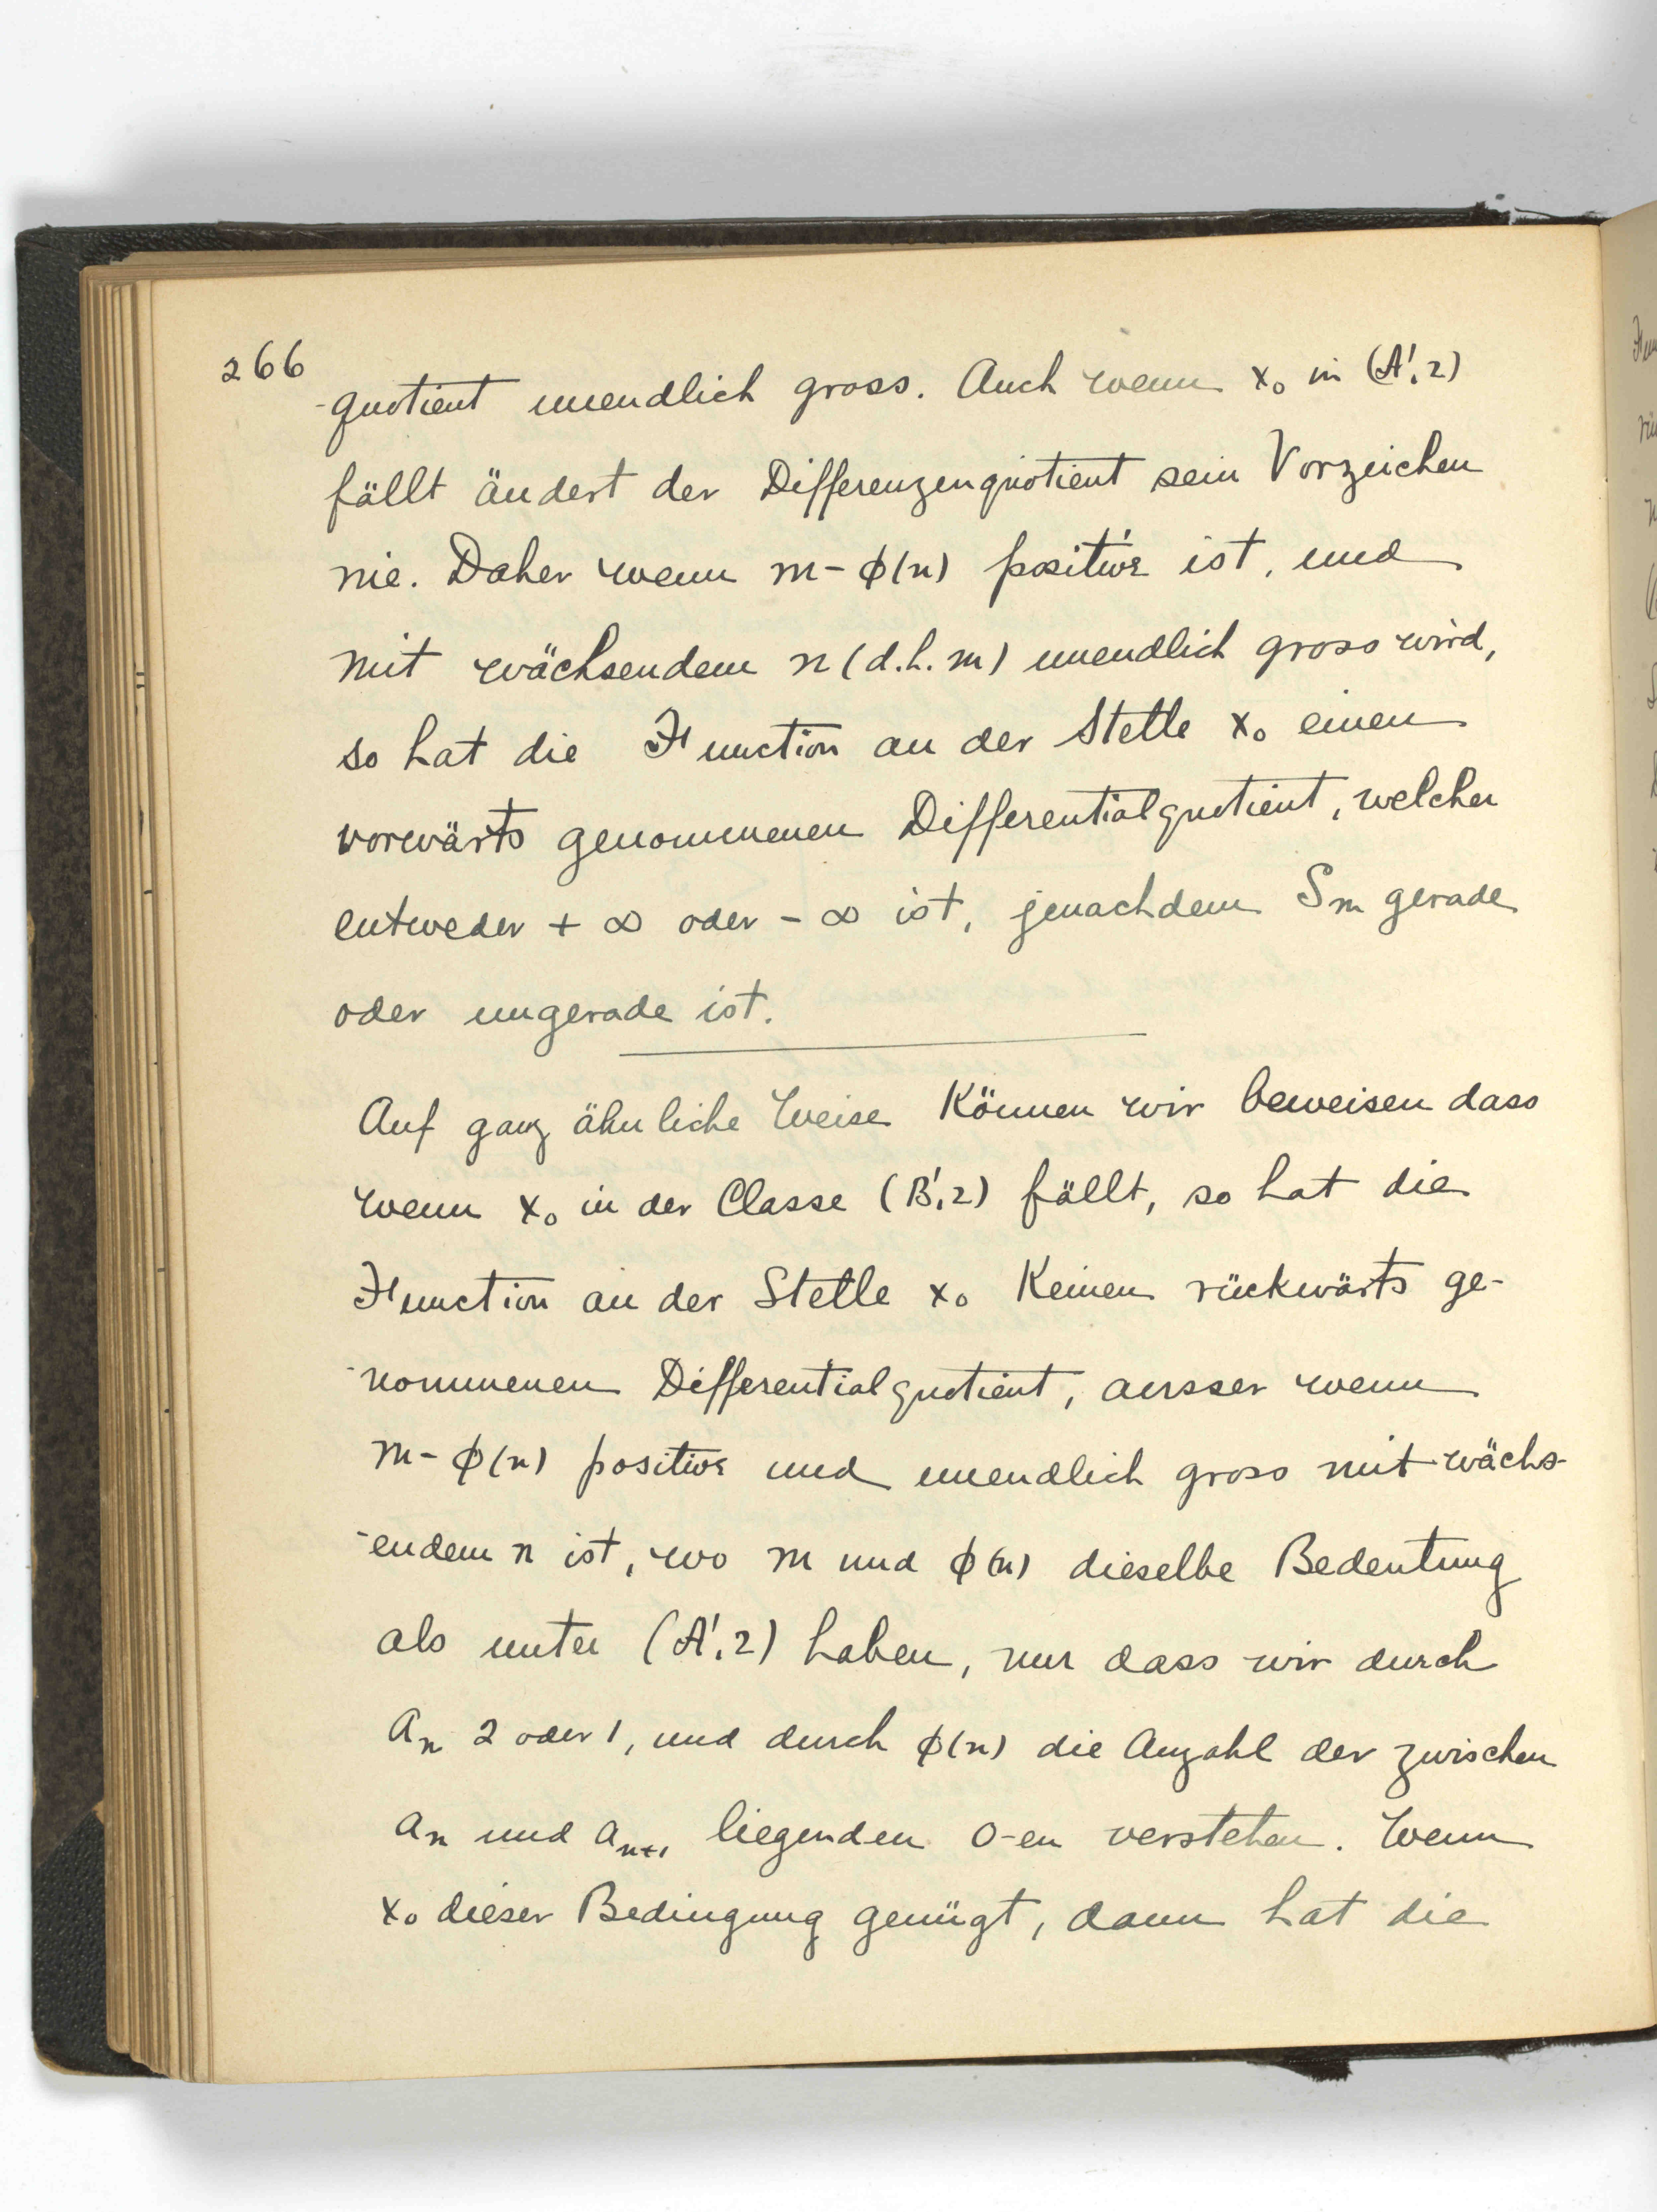 266
-quotient unendlich gross. Auch wenn x₀ in (A'.2)
fällt ändert der Differenzenquotient sein Vorzeichen
nie. Daher wenn m-ϕ(n) positive ist, und
mit wächsendem n (d.h. m) unendlich gross wird,
so hat die Function an der Stelle x₀ einen
vorwärts genommenen Differentialquotient, welcher
entweder + ∞ oder - ∞ ist, jenachdem Sₘ gerade
oder ungerade ist.
Auf ganz ähnliche Weise Können wir beweisen dass
wenn x₀ in der Classe (B'.2) fällt, so hat die
Function an der Stelle x₀ Keinen rückwärts ge-
-nommenen Differentialquotient, ausser wenn
m-ϕ(n) positive und unendlich gross mit wächs-
-endem n ist, wo m und ϕ(n) dieselbe Bedeutung
als unter (A'.2) haben, nur dass wir durch
aₙ 2 oder 1, und durch ϕ(n) die Anzahl der zwischen
aₙ und aₙ₊₁ liegenden 0-en verstehen. Wenn
x₀ dieser Bedingung genügt, dann hat die